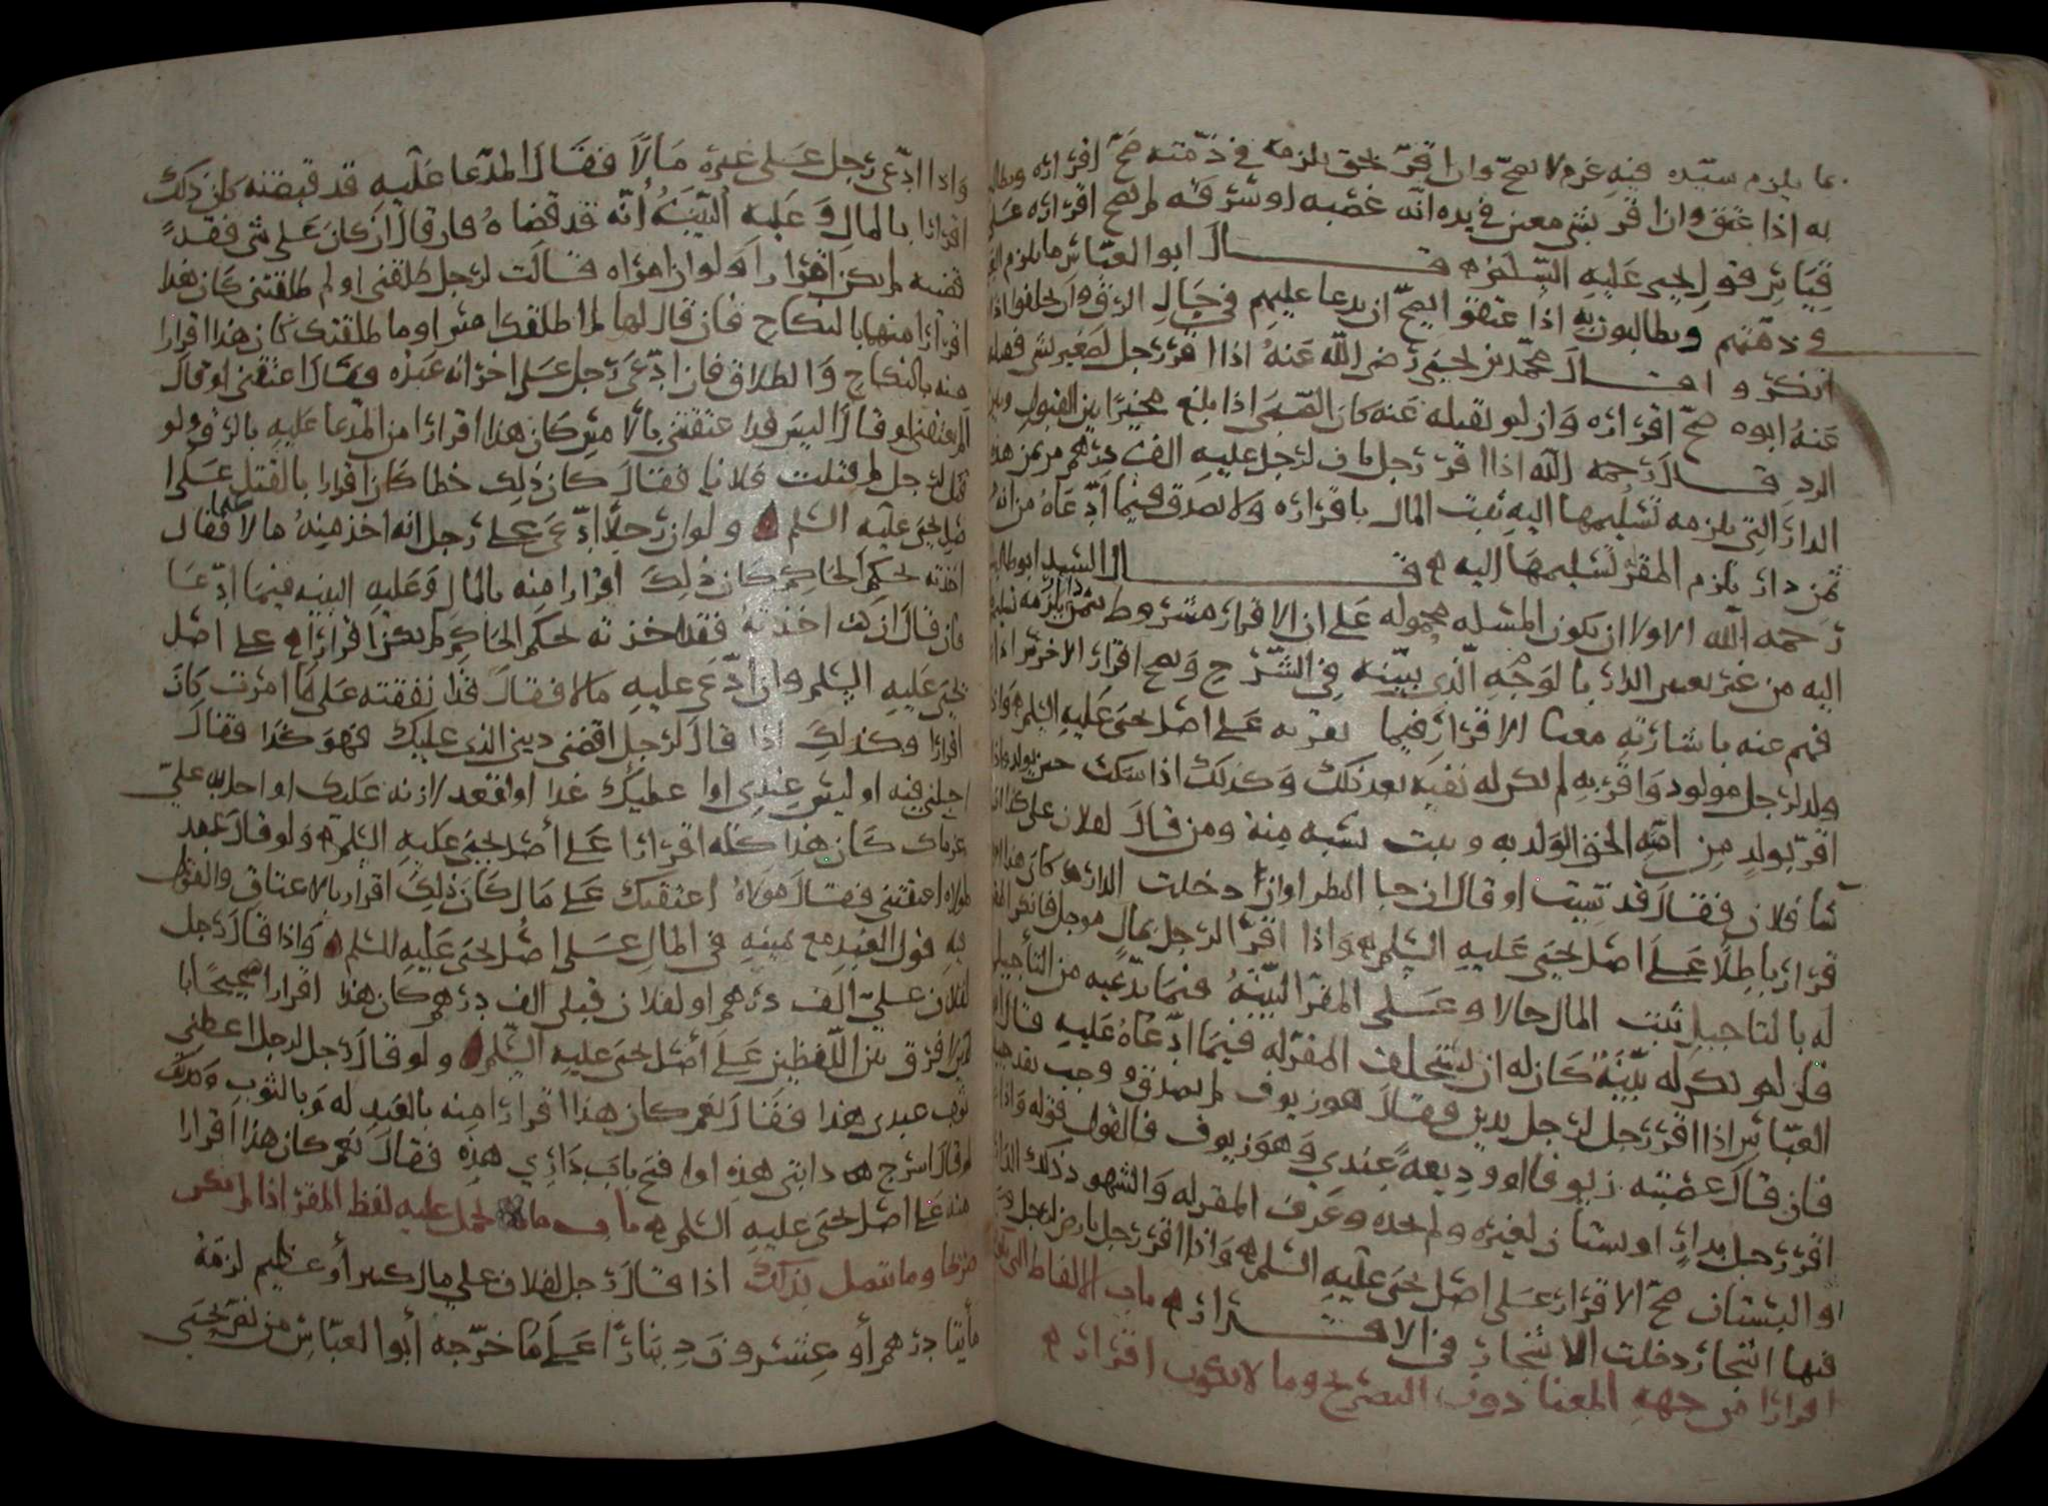 بما يلزم سيّده فيه غرم لا يصحّ وان اقرّ بحق يلزمه في ذمّته صحّ اقراره ويطالب
به اذا عتق وان اقر بشي معين في يده انّه غصبه او سرقه لم يصح اقراره على
قياس قول يحيى عليه السّلم قال ابو العبّاس ما يلزم
في ذمّتهم ويطالبون به اذا عتقوا يصحّ ان يدعا عليهم في حال الرق وان يحلفوا اذا
انكروا قال محمّد بن يحيى رضي اللّه عنهُ اذا اقرّ رجل لصغير بشي فقبله
عنهُ ابوه صحّ اقراره وان لم يقبله عنه كان الصّبي اذا بلغ مخيرًا بين القبول وبين
الرد قال رحمه اللّه اذا اقر رجل بان لرجل عليه الف درهم من ثمن هذه
الدار التي يلزمه تسليمها اليه ثبت المال باقراره ولا يصدق فيما ادّعاهُ من انهُ
ثمن دار يلزم المقر تسليمها اليه قال السّيد ابو طالب
رحمه اللّه الاولا ان يكون المسئله محموله على ان الاقرار مشروط بثمن دار يلزمه تسليمها
اليه من غير تعيين الدار بالوجه الّذي بيّنه في الشّرح ويصح اقرار الاخرس اذا
فهم عنه باشارته معنا الاقرار فيما يقر به على اصل يحيى عليه السّلم واذا
ولد لرجل مولود واقر به لم يكن له نفيه بعد ذلك وكذلك اذا سكت حين يولد واذا
اقرّ بولد من امته الحق الولد به وثبت نسبه منه ومن قال لفلان علي كذا ان
شا فلان فقال قد شيت او قال ان جا المطر او ان دخلت الدار كان هذا
اقرار باطلًا على اصل يحيى عليه السّلم واذا اقرّ الرجل بمال موجل فانكر المقر
له بالتاجيل ثبت المال حالا وعلى المقرّ البيّنهُ فيما يدّعيه من التأجيل
فان لم يكن له بيّنهٌ كان له ان يستحلف المقرّ له فيما ادّعاهُ عليه قال ابو
العبّاس اذا اقر رجل لرجل بدين وقال هو زيوف لم يصدق ووجب نقد جيد
فان قال غصبته زيوفا او وديعهً عندي وهو زيوف فالقول قوله واذا
اقر رجل بدارٍ او بستان لغيره ولم يحده وعرف المقر له والشهود ذلك الدار
او البستان صحّ الاقرار على اصل يحيى عليه السّلم واذا اقرّ رجل بارض لرجل
فيها اشجار دخلت الاشجار في الاقرار باب الالفاظ التي
اقرارًا من جهه المعنا دون التصريح وما لا يكون اقرارًا
واذا ادّعى رجل على غيره مالًا فقال المدّعا عليه قد قبضته كان ذلك
اقرارًا بالمال وعليه البيّنهُ انّه قد قضاهُ فان قال ان كان علي شي فقد
قضيته لم يكن اقرارا ولو ان امراه قالت لرجل طلقني او لم طلقتني كان هذا
اقرارًا منها بالنكاح فان قال لها لم اطلقك امس او ما طلقتك كان هذا اقرارا
منه بالنكاح والطلاق فان ادّعى رجل على اخر انه عبده فقال اعتقني او قال
الم تعتقني او قال اليس قد اعتقتني بالامس كان هذا اقرارًا من المدّعا عليه بالرق ولو
قيل لرجل لم قتلت فلانا فقال كان ذلك خطا كان اقرارا بالقتل على ا
صل يحيى عليه السّلم ولو ان رجلًا ادّعى على رجل انه اخذ منهُ مالا ظلما فقال
اخذته بحكم الحاكم كان ذلك اقرارا منه بالمال وعليه البينه فيما ادّعا
فان قال ان كنت اخذتهُ فقد اخذته بحكم الحاكم لم يكن اقرارًا على اصل
يحيى عليه السّلم وان ادّعى عليه مالا فقال قد انفقته على ما امرت كان
اقرارًا وكذلك اذا قال لرجل اقضني ديني الذي عليك فهو كذا فقال
اجلني فيه او ليس عندي او اعطيك غدا او اقعد لازنه عليك او احل به عليّ
غرماك كان هذا كله اقرارًا على اصل يحيى عليه السّلم ولو قال عبد
لمولاه اعتقتني فقال مولاهُ اعتقتك على مال كان ذلك اقرار بالاعتاق والقول
فيه قول العبد مع يمينه في المال على اصل يحيى عليه السّلم واذا قال رجل
لفلان عليّ الف درهم او لفلان قبلي الف درهم كان هذا اقرارا صحيحًا
لا فرق بين اللّفظين على أصل يحيى عليه السّلم ولو قال رجل لرجل اعطني
ثوب عبدي هذا فقال نعم كان هذا اقرارًا منه بالعبد له وبالثوب وكذلك
لو قال اسرج دابتي هذه او افتح باب داري هذه فقال نعم كان هذا اقرارا
منه على اصل يحيى عليه السّلم باب ما يحمل عليه لفظ المقر اذا لم يكن
صرفا وما يتصل بذلك اذا قال رجل لفلان علي مال كثير أو عظيم لزمهُ
مأيتا درهم أو عشرون دينارًا على ما خرّجه أبو العبّاس من نص يحيى